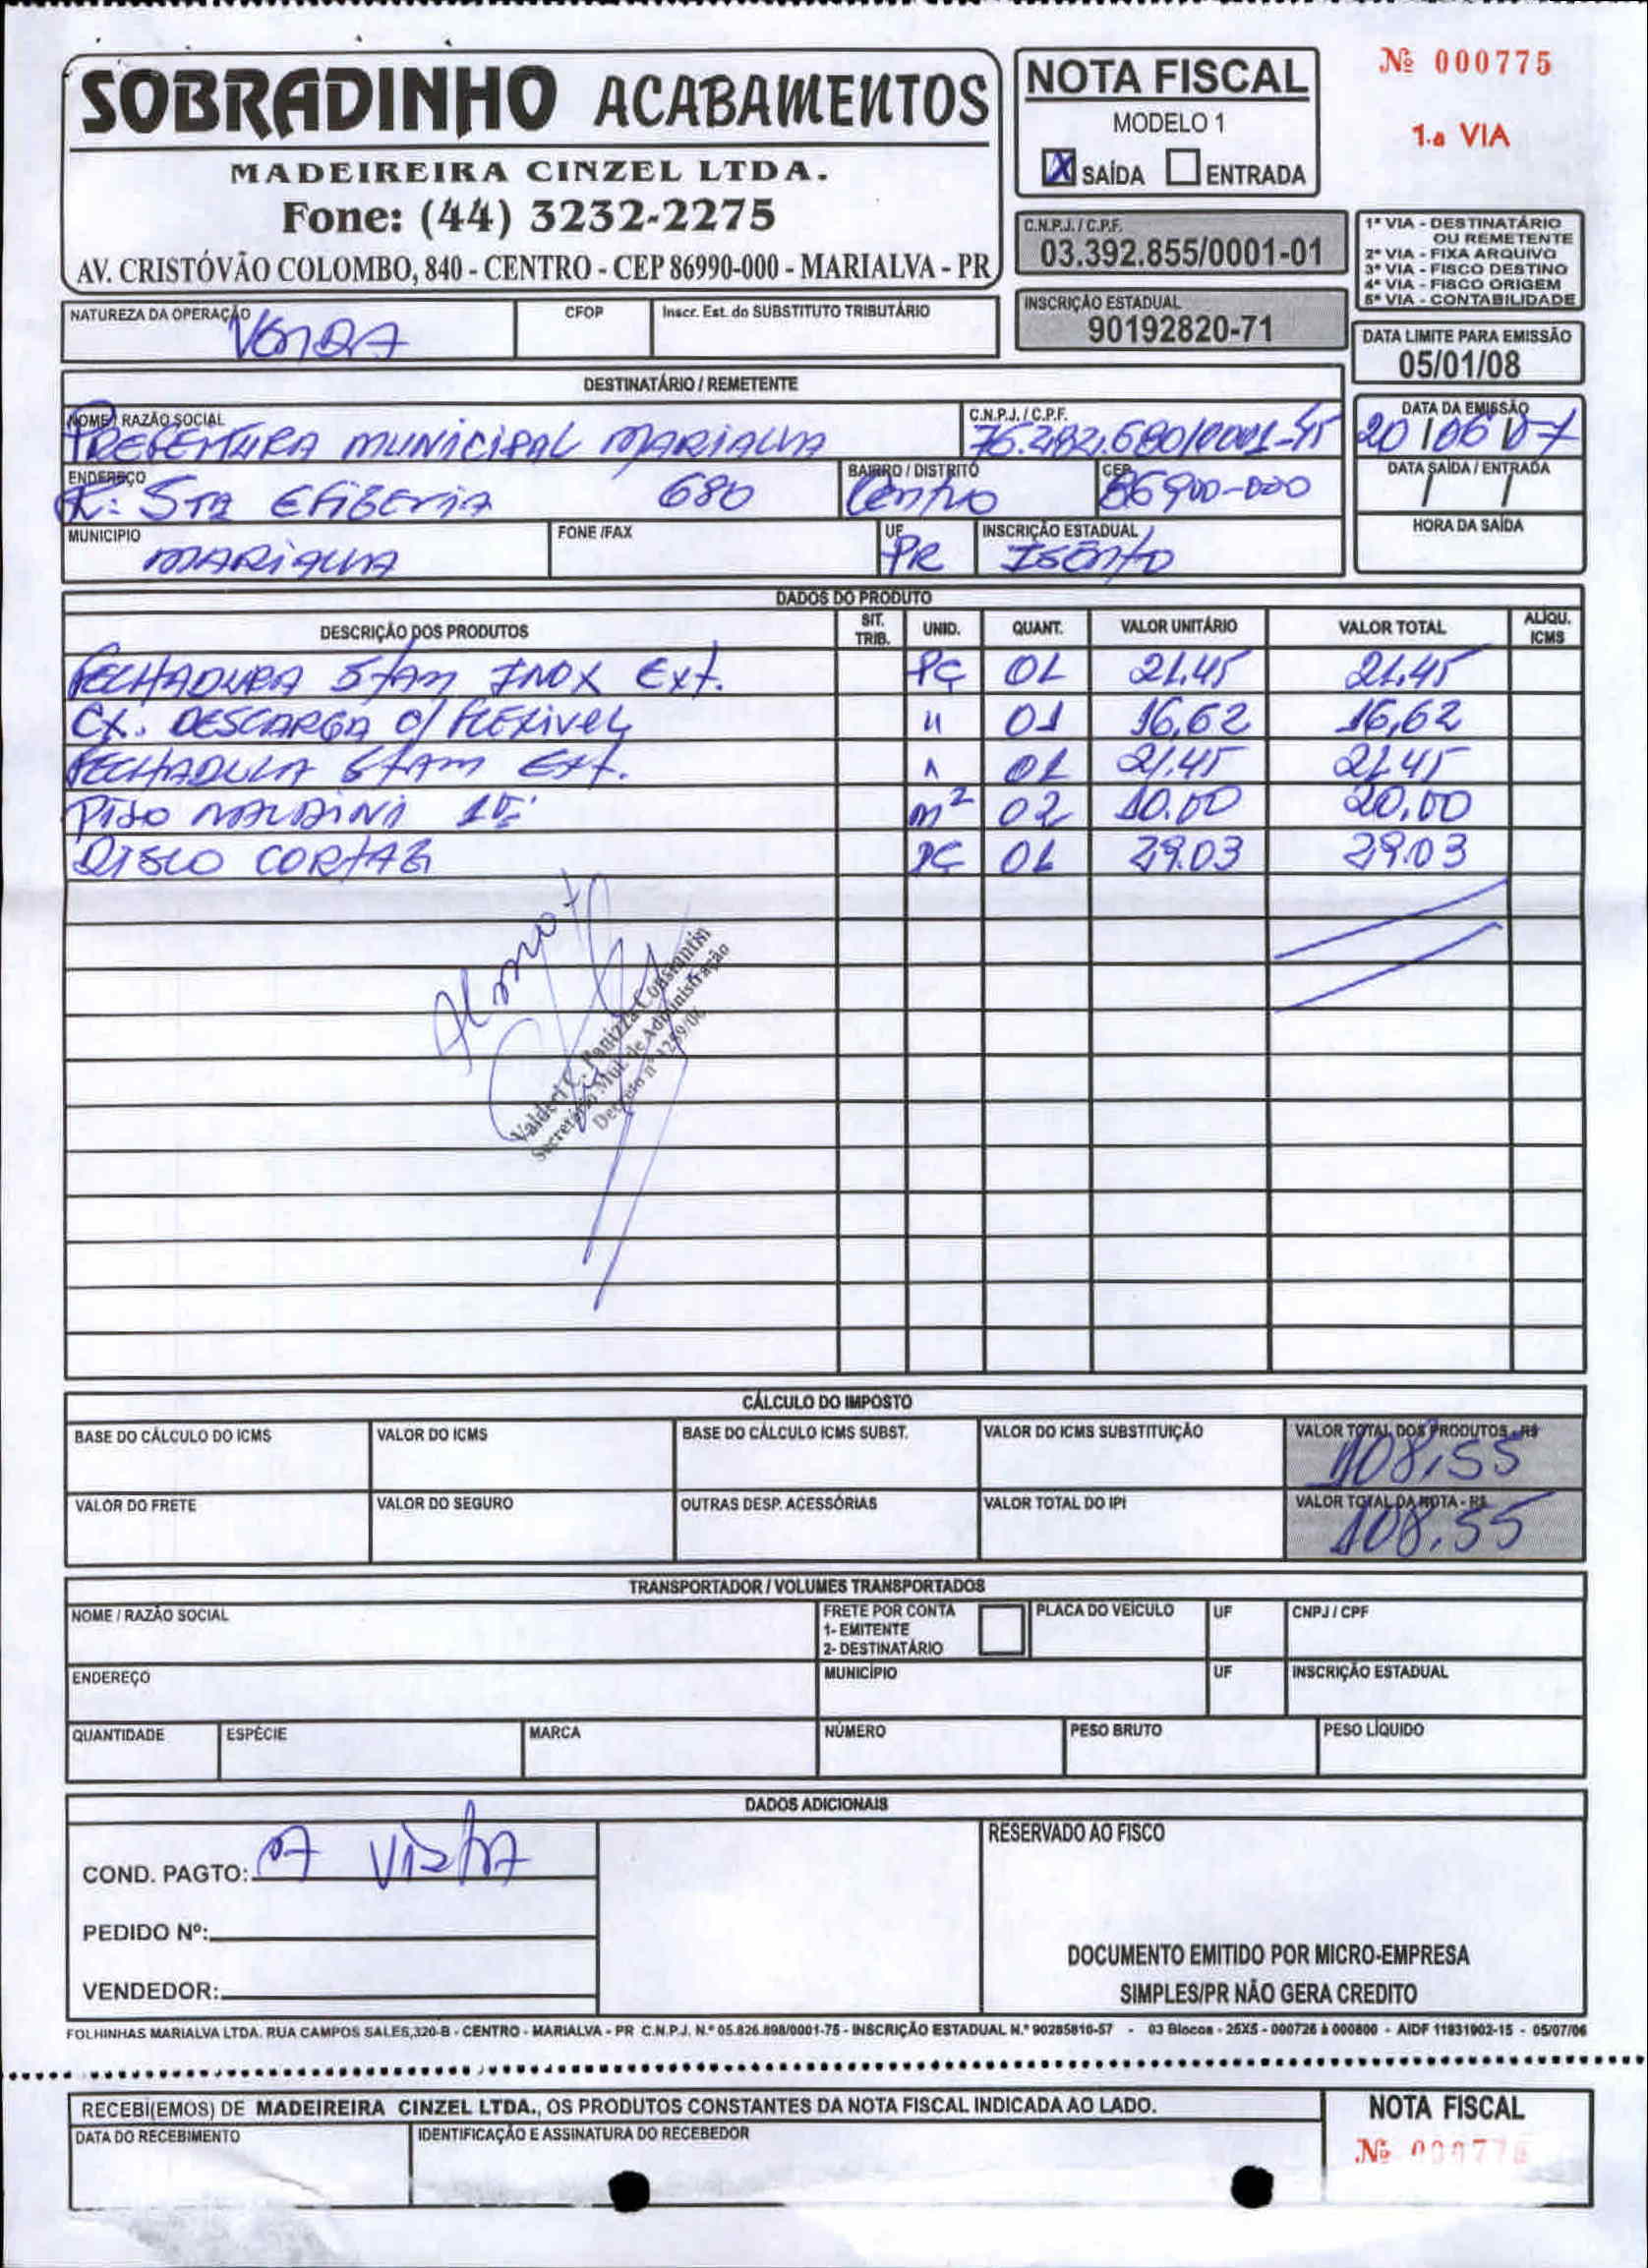 SOBRADINHO ACABAMENTOS
MADEIREIRA CINZEL LTDA.
Fone: (44) 3232-2275
AV. CRISTÓVÃO COLOMBO, 840 - CENTRO - CEP 86990-000 - MARIALVA - PR
NOTA FISCAL
MODELO 1
X SAÍDA ENTRADA
Nº 000775
1.a VIA
C.N.P.J. / C.P.F.
03.392.855/0001-01
INSCRIÇÃO ESTADUAL
90192820-71
1ª VIA - DESTINATÁRIO
OU REMETENTE
2ª VIA - FIXA ARQUIVO
3ª VIA - FISCO DESTINO
4ª VIA - FISCO ORIGEM
5ª VIA - CONTABILIDADE
DATA LIMITE PARA EMISSÃO
05/01/08
NATUREZA DA OPERAÇÃO CFOP Inscr. Est. do SUBSTITUTO TRIBUTÁRIO
VENDA
DESTINATÁRIO / REMETENTE
NOME / RAZÃO SOCIAL C.N.P.J. / C.P.F. DATA DA EMISSÃO
PREFEITURA MUNICIPAL MARIALVA 76.282.680/0001-45 20/06/07
ENDEREÇO BAIRRO / DISTRITO CEP DATA SAÍDA / ENTRADA
R: STA EFIGENIA 680 Centro 86900-000 / /
MUNICIPIO FONE /FAX UF INSCRIÇÃO ESTADUAL HORA DA SAÍDA
MARIALVA PR ISENTO
DADOS DO PRODUTO
DESCRIÇÃO DOS PRODUTOS SIT. TRIB. UNID. QUANT. VALOR UNITÁRIO VALOR TOTAL ALÍQU. ICMS
FECHADURA STAM INOX Ext. PÇ 01 21,45 21,45
CX. DESCARGA C/ FLEXIVEL " 01 16,62 16,62
FECHADURA STAM Ext. 01 21,45 21,45
PISO 02 10,00 20,00
m²
DISCO CORTAG PÇ 01 29.03 29.03
Almox
Valdeci C. Panizza Constantin
Secretário Mun. de Administração
Decreto nº 1259/06
CÁLCULO DO IMPOSTO
BASE DO CÁLCULO DO ICMS VALOR DO ICMS BASE DO CÁLCULO ICMS SUBST. VALOR DO ICMS SUBSTITUIÇÃO VALOR TOTAL DOS PRODUTOS - R$
108,55
VALOR DO FRETE VALOR DO SEGURO OUTRAS DESP. ACESSÓRIAS VALOR TOTAL DO IPI VALOR TOTAL DA NOTA - R$
108,55
TRANSPORTADOR / VOLUMES TRANSPORTADOS
NOME / RAZÃO SOCIAL FRETE POR CONTA PLACA DO VEÍCULO UF CNPJ / CPF
1- EMITENTE
2- DESTINATÁRIO
ENDEREÇO MUNICÍPIO UF INSCRIÇÃO ESTADUAL
QUANTIDADE ESPÉCIE MARCA NÚMERO PESO BRUTO PESO LÍQUIDO
DADOS ADICIONAIS
COND. PAGTO: A VISTA
PEDIDO Nº:
VENDEDOR:
RESERVADO AO FISCO
DOCUMENTO EMITIDO POR MICRO-EMPRESA
SIMPLES/PR NÃO GERA CREDITO
FOLHINHAS MARIALVA LTDA. RUA CAMPOS SALES,320-B - CENTRO - MARIALVA - PR C.N.P.J. N.º 05.826.898/0001-75 - INSCRIÇÃO ESTADUAL N.º 90285816-57 - 03 Blocos - 25X5 - 000726 à 000800 - AIDF 11831902-15 - 05/07/06
RECEBI(EMOS) DE MADEIREIRA CINZEL LTDA., OS PRODUTOS CONSTANTES DA NOTA FISCAL INDICADA AO LADO.
DATA DO RECEBIMENTO IDENTIFICAÇÃO E ASSINATURA DO RECEBEDOR
NOTA FISCAL
Nº 000775